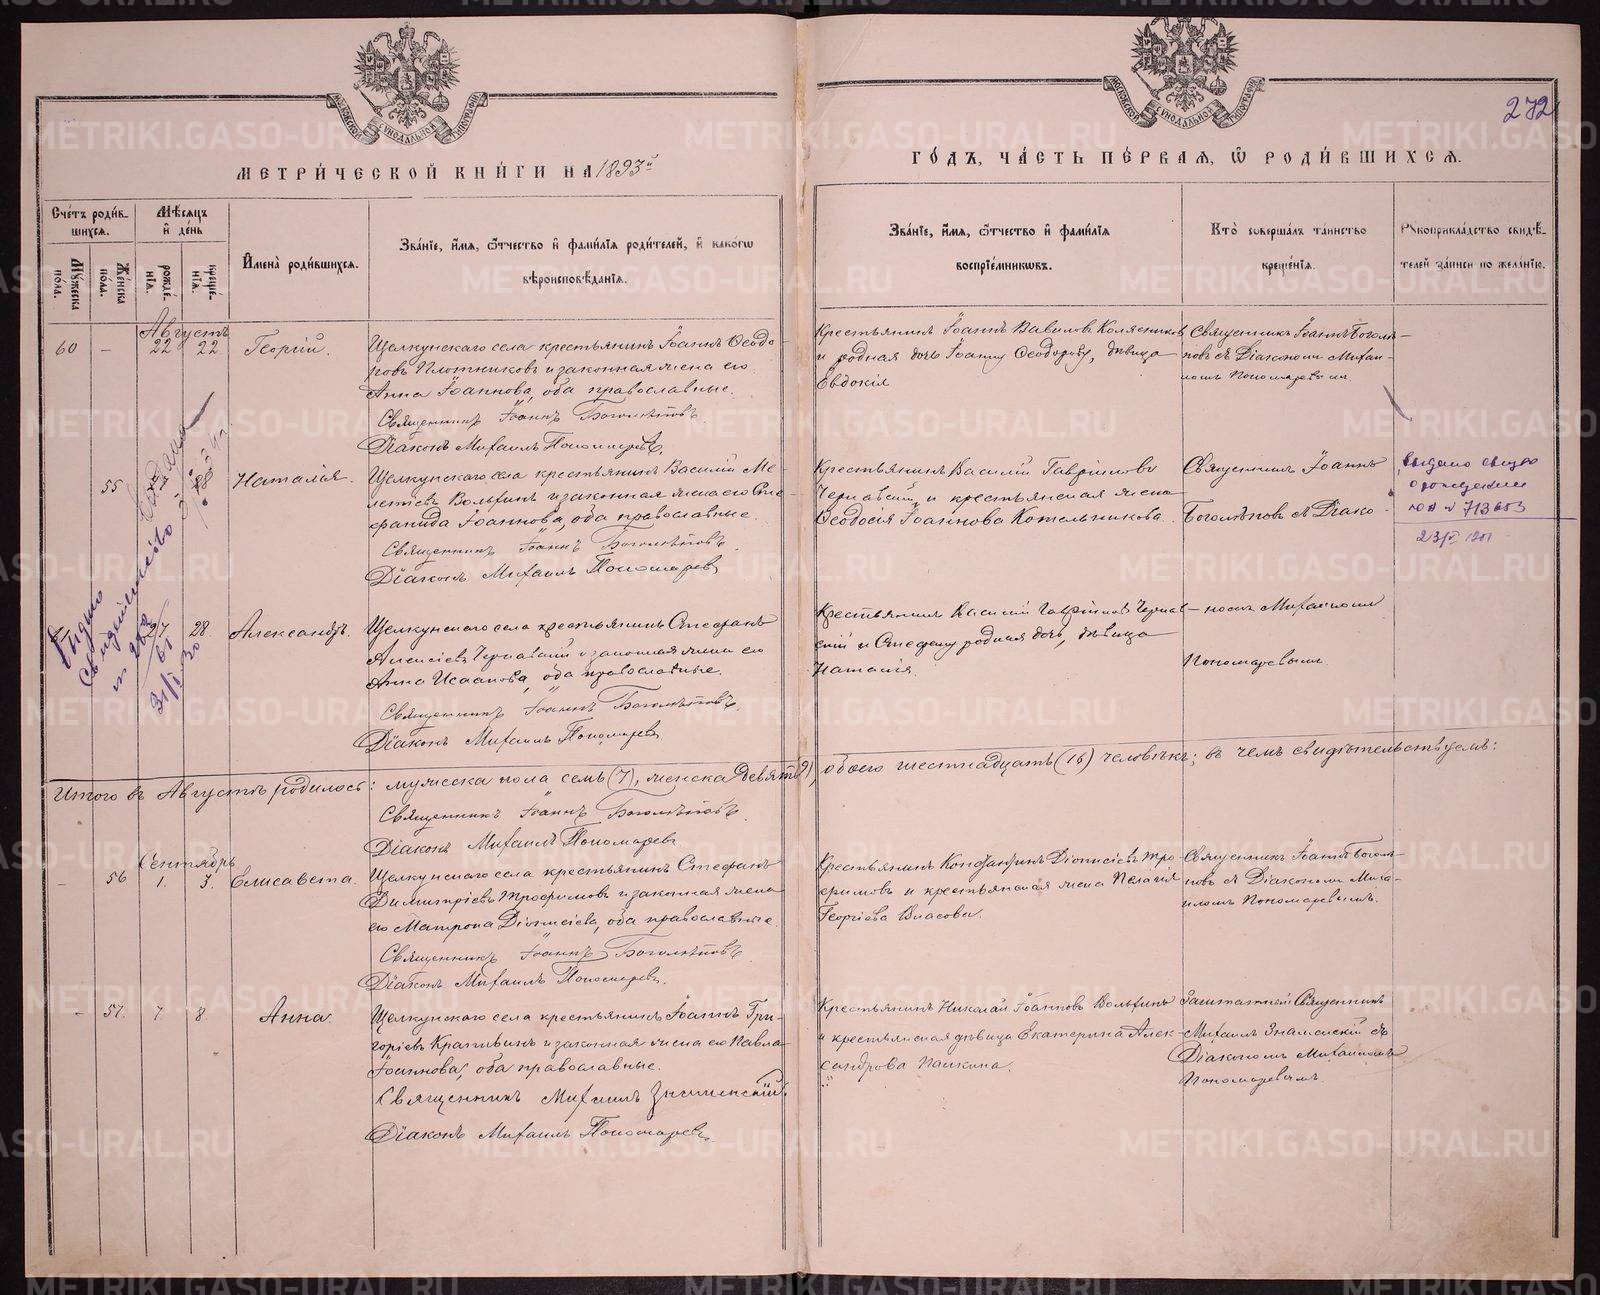 МЕТРИ́ЧЕСКОЙ КНИ́ГИ НА 1893й
ГО́ДЪ, ЧА́СТЬ ПЕ́РВАЯ, Ѡ РОДИ́ВШИХСЯ.
272
Сче́тъ роди́в-
шихся.
Му́жеска по́ла.
Же́нска по́ла.
Мѣ́сяцъ и҆ де́нь
рожде́-
нїя.
креще́-
нїя.
И҆мена̀ роди́вшихся.
Зва́нїе, и҆́мя, ѻ҆́тчество и҆ фами́лїя роди́телей, и҆ како́гѡ
вѣроисповѣ́данїя.
Зва́нїе, и҆́мя, ѻ҆́тчество и҆ фами́лїя
воспрїе́мникѡвъ.
Кто̀ соверша́лъ та́инство
креще́нїя.
Рꙋкоприкла́дство свидѣ́-
телей за́писи по жела́нїю.
Августъ
60 – 22 22 Георгій.
Щелкунскаго села крестьянинъ Іоаннъ Ѳеодо-
ровъ Плотниковъ и законная жена его
Анна Іоаннова, оба православные.
Священникъ Іоаннъ Боголѣповъ
Діаконъ Михаилъ Пономаревъ
Крестьянинъ Іоаннъ Вавиловъ Колясниковъ
и родная дочь Іоанну Ѳеодорову, дѣвица
Евдокія
Священникъ Іоаннъ Боголѣ-
повъ съ Діакономъ Михаи-
ломъ Пономаревымъ.
55 Наталія.
Щелкунскаго села крестьянинъ Василій Ме-
летіевъ Вольхинъ и законная жена его Сте-
фанида Іоаннова, оба православные.
Священникъ Іоаннъ Боголѣповъ
Діаконъ Михаилъ Пономаревъ
Крестьянинъ Василій Гавріиловъ
Чернавскій и крестьянская жена
Ѳеодосія Іоаннова Котельникова.
Священникъ Іоаннъ
Боголѣповъ съ Діако-
Выдано
Выдано
28. Александръ.
Щелкунскаго села крестьянинъ Стефанъ
Алексіевъ Чернавскій и законная жена его
Анна Исаакова, оба православные.
Священникъ Іоаннъ Боголѣповъ
Діаконъ Михаилъ Пономаревъ
Крестьянинъ Василій Гавріиловъ Чернав-
скій и Стефану родная дочь, дѣвица
Наталія.
номъ Михаиломъ
Пономаревымъ.
Итого въ Августѣ родилось: мужеска пола семь (7), женска девять (9), обоего шестнадцать (16) человѣкъ; въ чемъ свидѣтельствуемъ:
Священникъ Іоаннъ Боголѣповъ
Діаконъ Михаилъ Пономаревъ
Сентябрь
– 56 1. 3. Елисавета.
Щелкунскаго села крестьянинъ Стефанъ
Димитріевъ Трофимовъ и законная жена
его Матрона Діонисіева, оба православные.
Священникъ Іоаннъ Боголѣповъ
Діаконъ Михаилъ Пономаревъ.
Крестьянинъ Константинъ Діонисіевъ Тро-
фимовъ и крестьянская жена Пелагія
Георгіева Власова.
Священникъ Іоаннъ Боголѣ-
повъ съ Діакономъ Миха-
иломъ Пономаревымъ.
– 57. 7 8. Анна.
Щелкунскаго села крестьянинъ Іоаннъ Гри-
горіевъ Крапивинъ и законная жена его Павла
Іоаннова, оба православные.
Священникъ Михаилъ Знаменскій
Діаконъ Михаилъ Пономаревъ
Крестьянинъ Николай Іоанновъ Вольхинъ
и крестьянская дѣвица Екатерина Алек-
сандрова Палкина.
Заштатный Священникъ
Михаилъ Знаменскій съ
Діакономъ Михаиломъ
Пономаревымъ